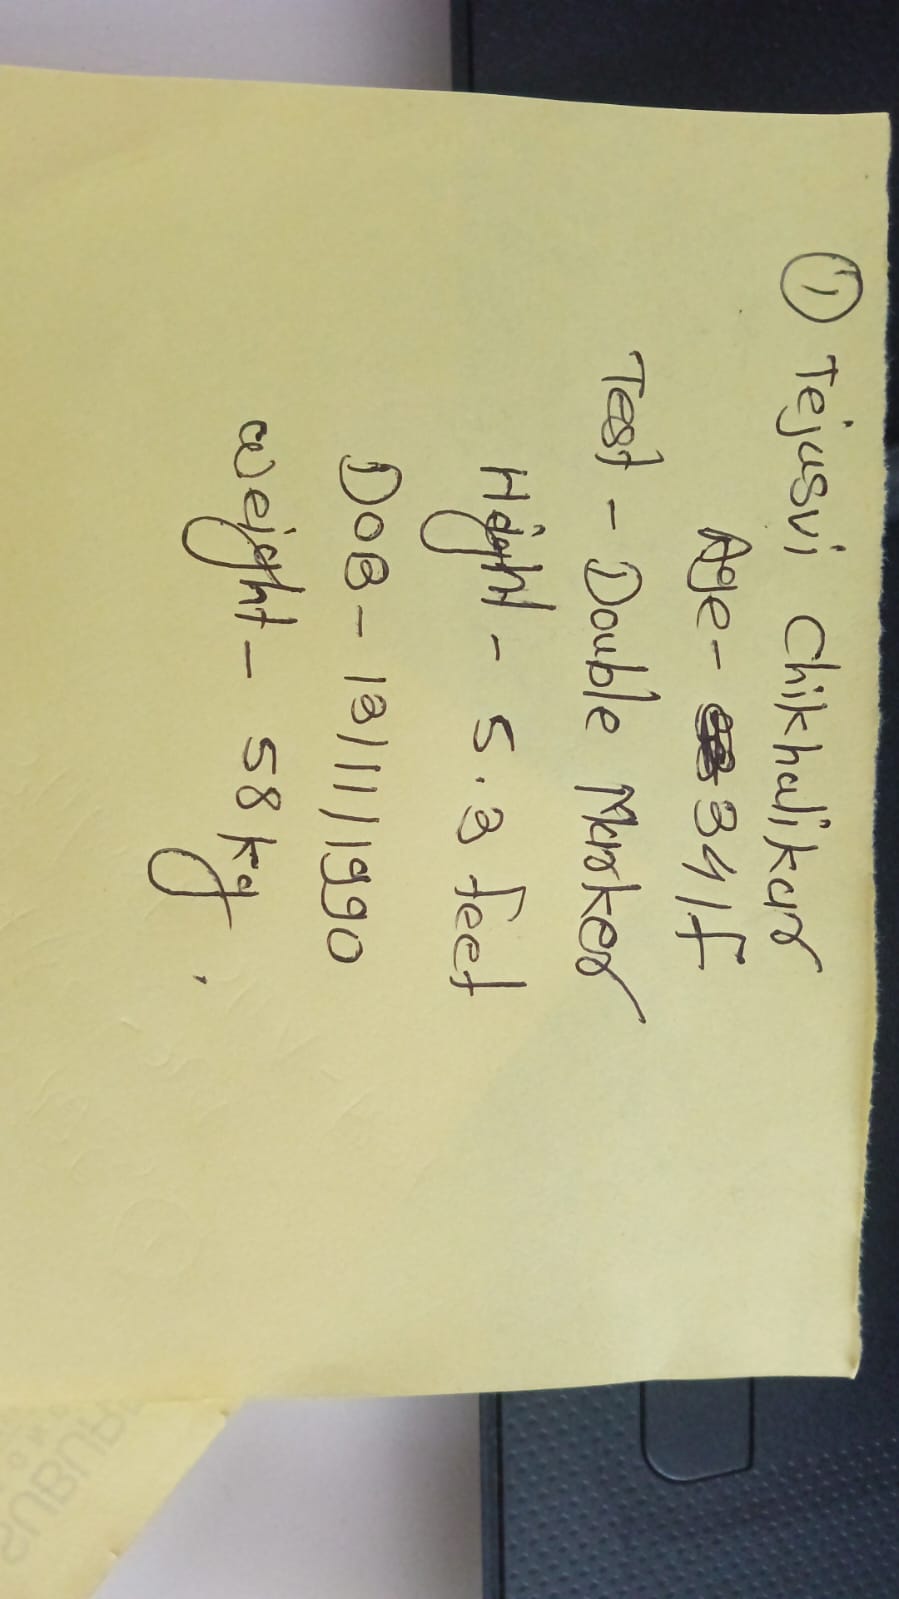 ① Tejasvi Chikhalikar
Age - 34/F
Test - Double Marker
Height - 5.3 feet
DOB - 13/11/1990
Weight - 58 kg.